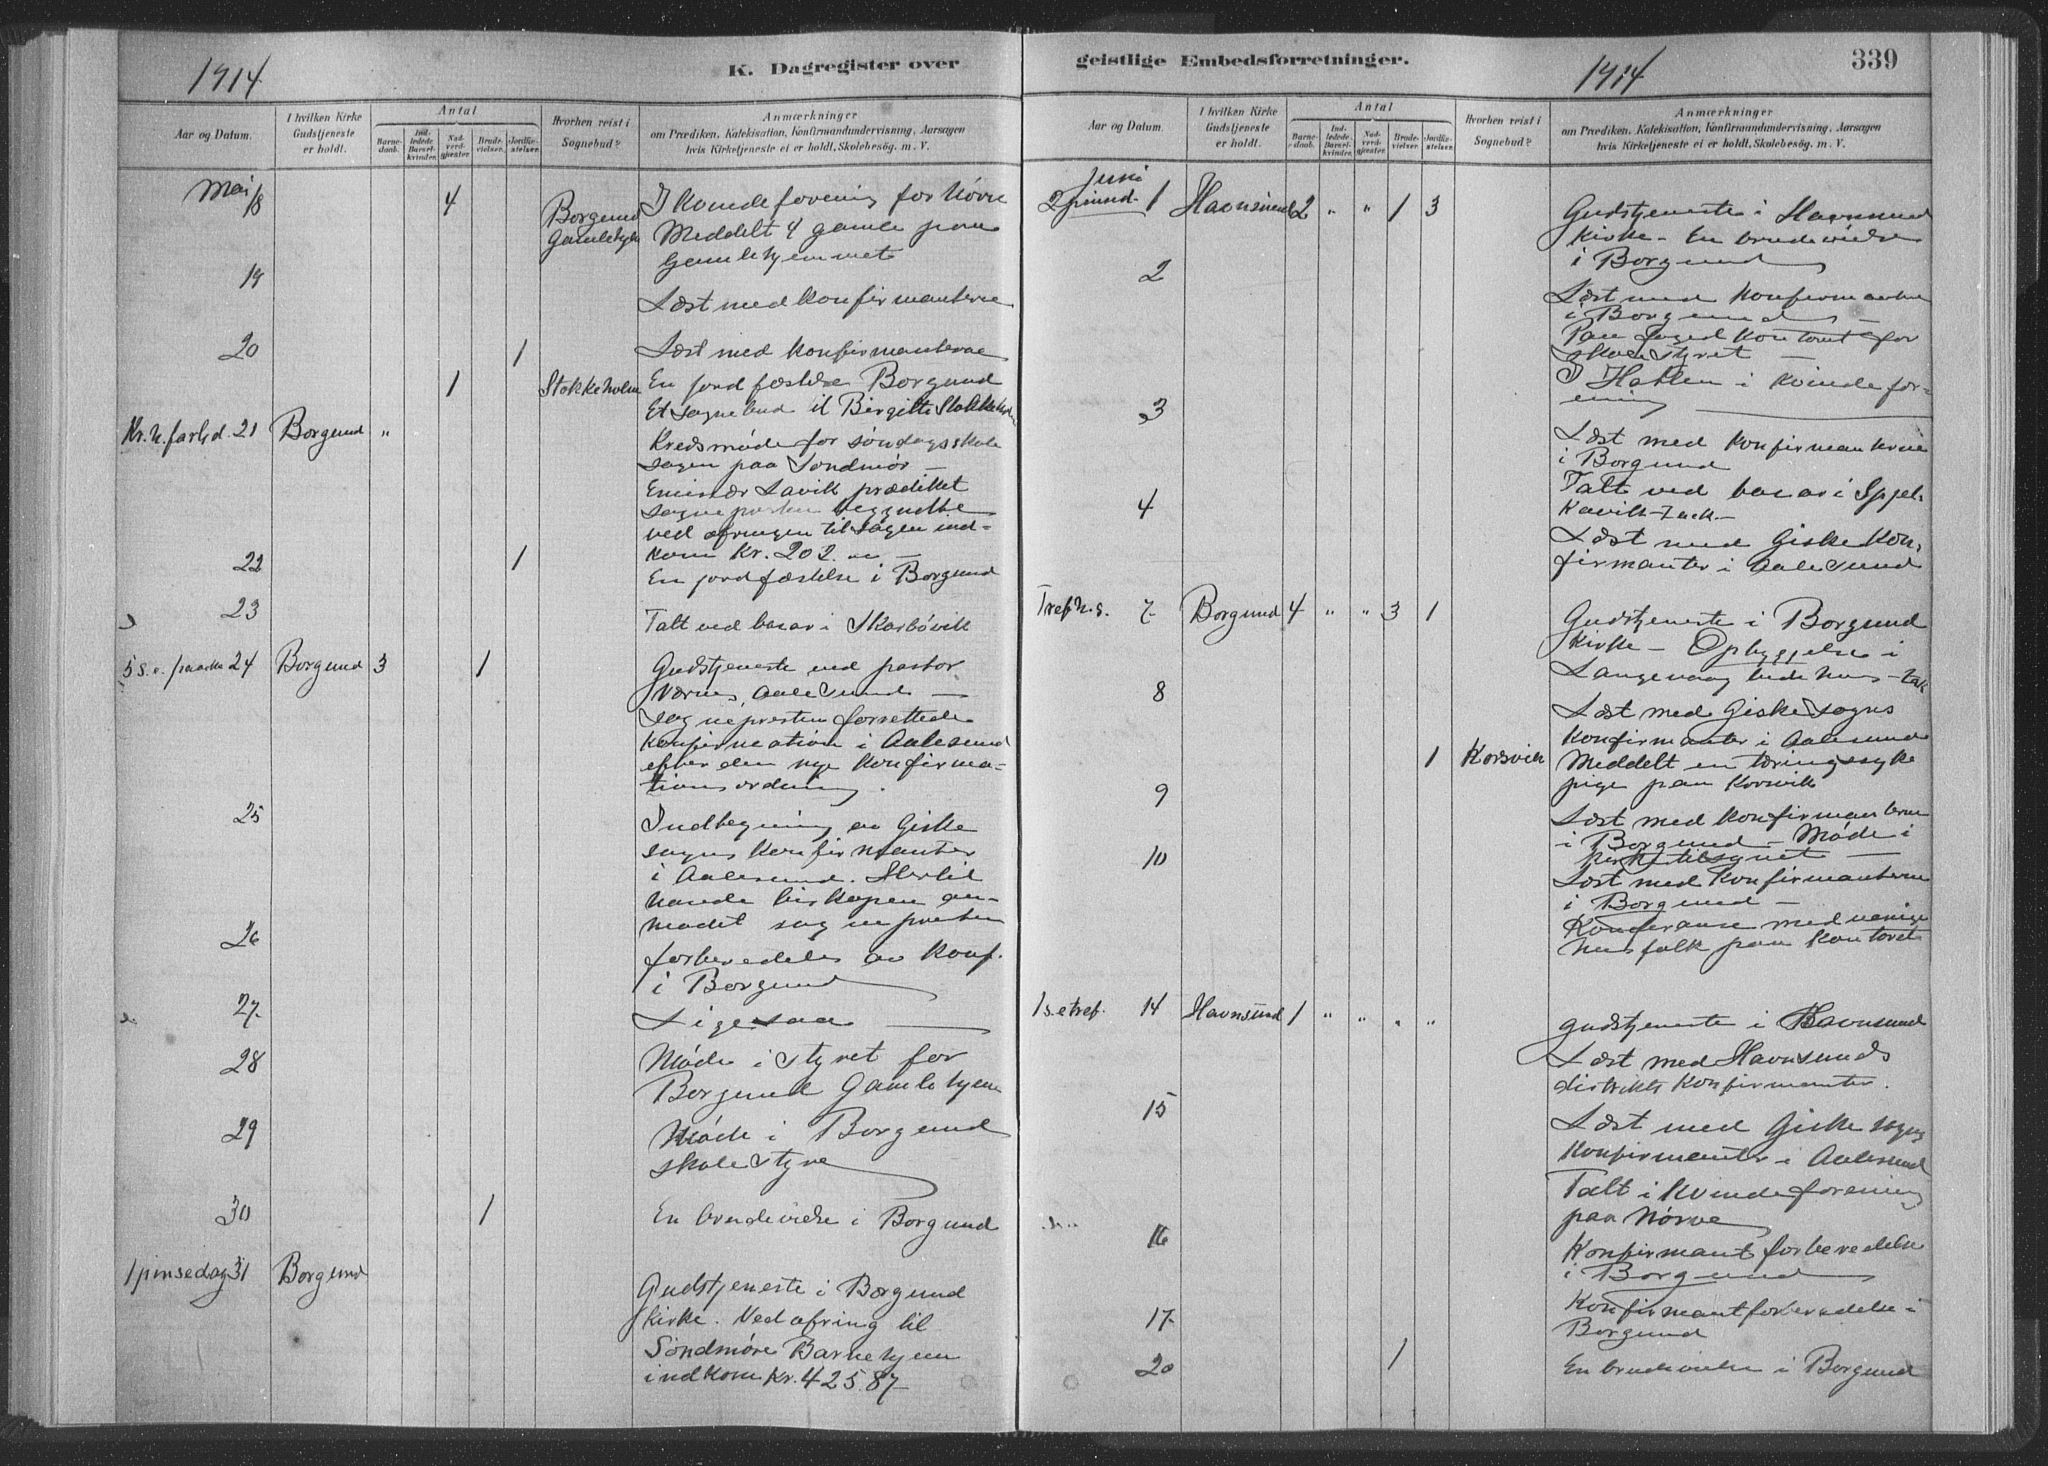 1914
K. Dagregister over
Aar og Datum.
I hvilken Kirke Gudstjeneste er holdt.
Antal
Barnedaab.
Indledede Barselkvinder.
Nadverdgjester
Brudevielser.
Jordfæstelser.
Hvorhen reist i Sognebud?
Anmærkninger
om Prædiken, Katekisation, Konfirmandundervisning, Aarsagen
hvis Kirketjeneste ei er holdt, Skolebesøg. m. V.
Mai 18 4 Borgund Gamlehjem
I Kvindeforening for Nørve
Meddelt 4 gamle paa
Gamlehjemmet
19
Læst med konfirmanterne
20 1
Læst med konfirmanterne
1 Stokkeholm
En jordfæstelse Borgund
Et sognebud til Birgitte Stokkeholm
Kr. h. farts d. 21 Borgund "
Kredsmøde for søndagsskole
sagen paa Søndmør —
Emissær Lavik prædiket
sognepresten begyndte
ved ofringen til sagen ind-
kom Kr. 202 —
22 1
En jordfæstelse i Borgund
23
Talt ved basar i Skarbøvik
5 s. e. paaske 24 Borgund 3 1
Gudstjeneste ved pastor
Værnes, Aalesund —
sognepresten forrettede
konfirmation i Aalesund
efter den nye konfirma-
tionsordning.
25
Indtegning av Giske
sogns konfirmanter
i Aalesund. Hertil
havde biskopen an-
modet sognepresten
26
forberedelse av konf.
i Borgund
27
Ligesaa —
28
Møde i styret for
Borgund Gamlehjem
29
Møde i Borgund
skolestyre
30 1
En brudevielse i Borgund
1 pinsedag 31 Borgund
Gudstjeneste i Borgund
kirke. Ved ofring til
Søndmøre Barnehjem
indkom Kr. 425.87
geistlige Embedsforretninger.
1914
339
Aar og Datum.
I hvilken Kirke Gudstjeneste er holdt.
Antal
Barnedaab.
Indledede Barselkvinder.
Nadverdgjester.
Brudevielser.
Jordfæstelser.
Hvorhen reist i Sognebud?
Anmærkninger
om Prædiken, Katekisation, Konfirmandundervisning, Aarsagen
hvis Kirketjeneste ei er holdt, Skolebesøg. m. V.
Juni
2 pinsed. 1 Havnsund 2 " " 1 3
Gudstjeneste i Havnsund
kirke — En brudevielse
i Borgund
2
Læst med konfirmanterne
i Borgund —
Paa fogedkontoret for
skolestyret —
I Hatlen i kvindefor-
ening
3
Læst med konfirmanterne
i Borgund
Talt ved basar i Spjel-
kavik
4
Læst med Giske kon-
firmanter i Aalesund
Tref. h. s. 7 Borgund 4 " " 3 1
Gudstjeneste i Borgund
kirke — Opbyggelse i
Langevaag bedehus
8
Læst med Giske sogns
konfirmanter i Aalesund
1 Korsvik
Meddelt en tæringssyke
pige paa Korsvik
9
Læst med konfirmanterne
i Borgund — Møde i
—
10
Læst med konfirmanterne
i Borgund —
Konferanse med uenige
husfolk paa kontoret
1 s. e tref. 14 Havnsund 1 " " " "
Gudstjeneste i Havnsund
Læst med Havnsunds
distrikts konfirmanter.
15
Læst med Giske sogns
konfirmanter i Aalesund
Talt i kvindeforening
paa Nørve
16
Konfirmantforberedelse
i Borgund
17
Konfirmantforberedelse i
Borgund
20 1
En brudevielse i Borgund